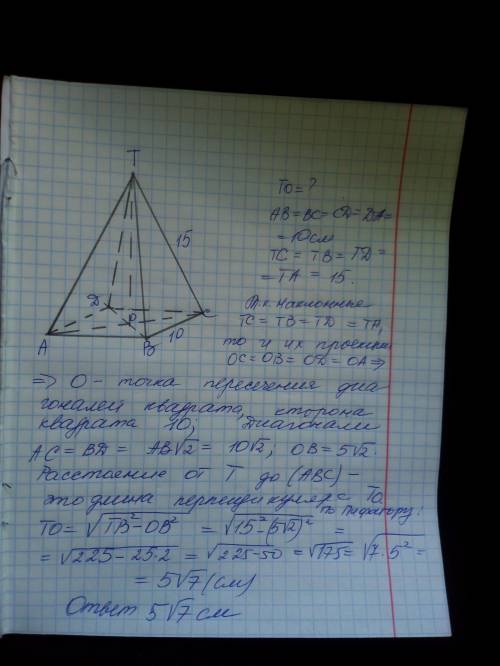 T
TO = ?
AB = BC = CD = DA =
= 10 см
15
TC = TB = TD =
= TA = 15.
Т.к наклонные
TC = TB = TD = TA,
D
O
C
A
B
10
то и их проекции
OC = OB = OD = OA ⇒
⇒ O – точка пересечения диа
гоналей квадрата, сторона
квадрата 10; Диагонали
AC = BD = AB√2 = 10√2, OB = 5√2.
Расстояние от T до (ABC) –
это длина перпендикуляра TO.
по Пифагору:
TO = √TB² - OB² = √15² - (5√2)² =
= √225 - 25·2 = √225 - 50 = √175 = √7·5² =
= 5√7 (см)
Ответ 5√7 см